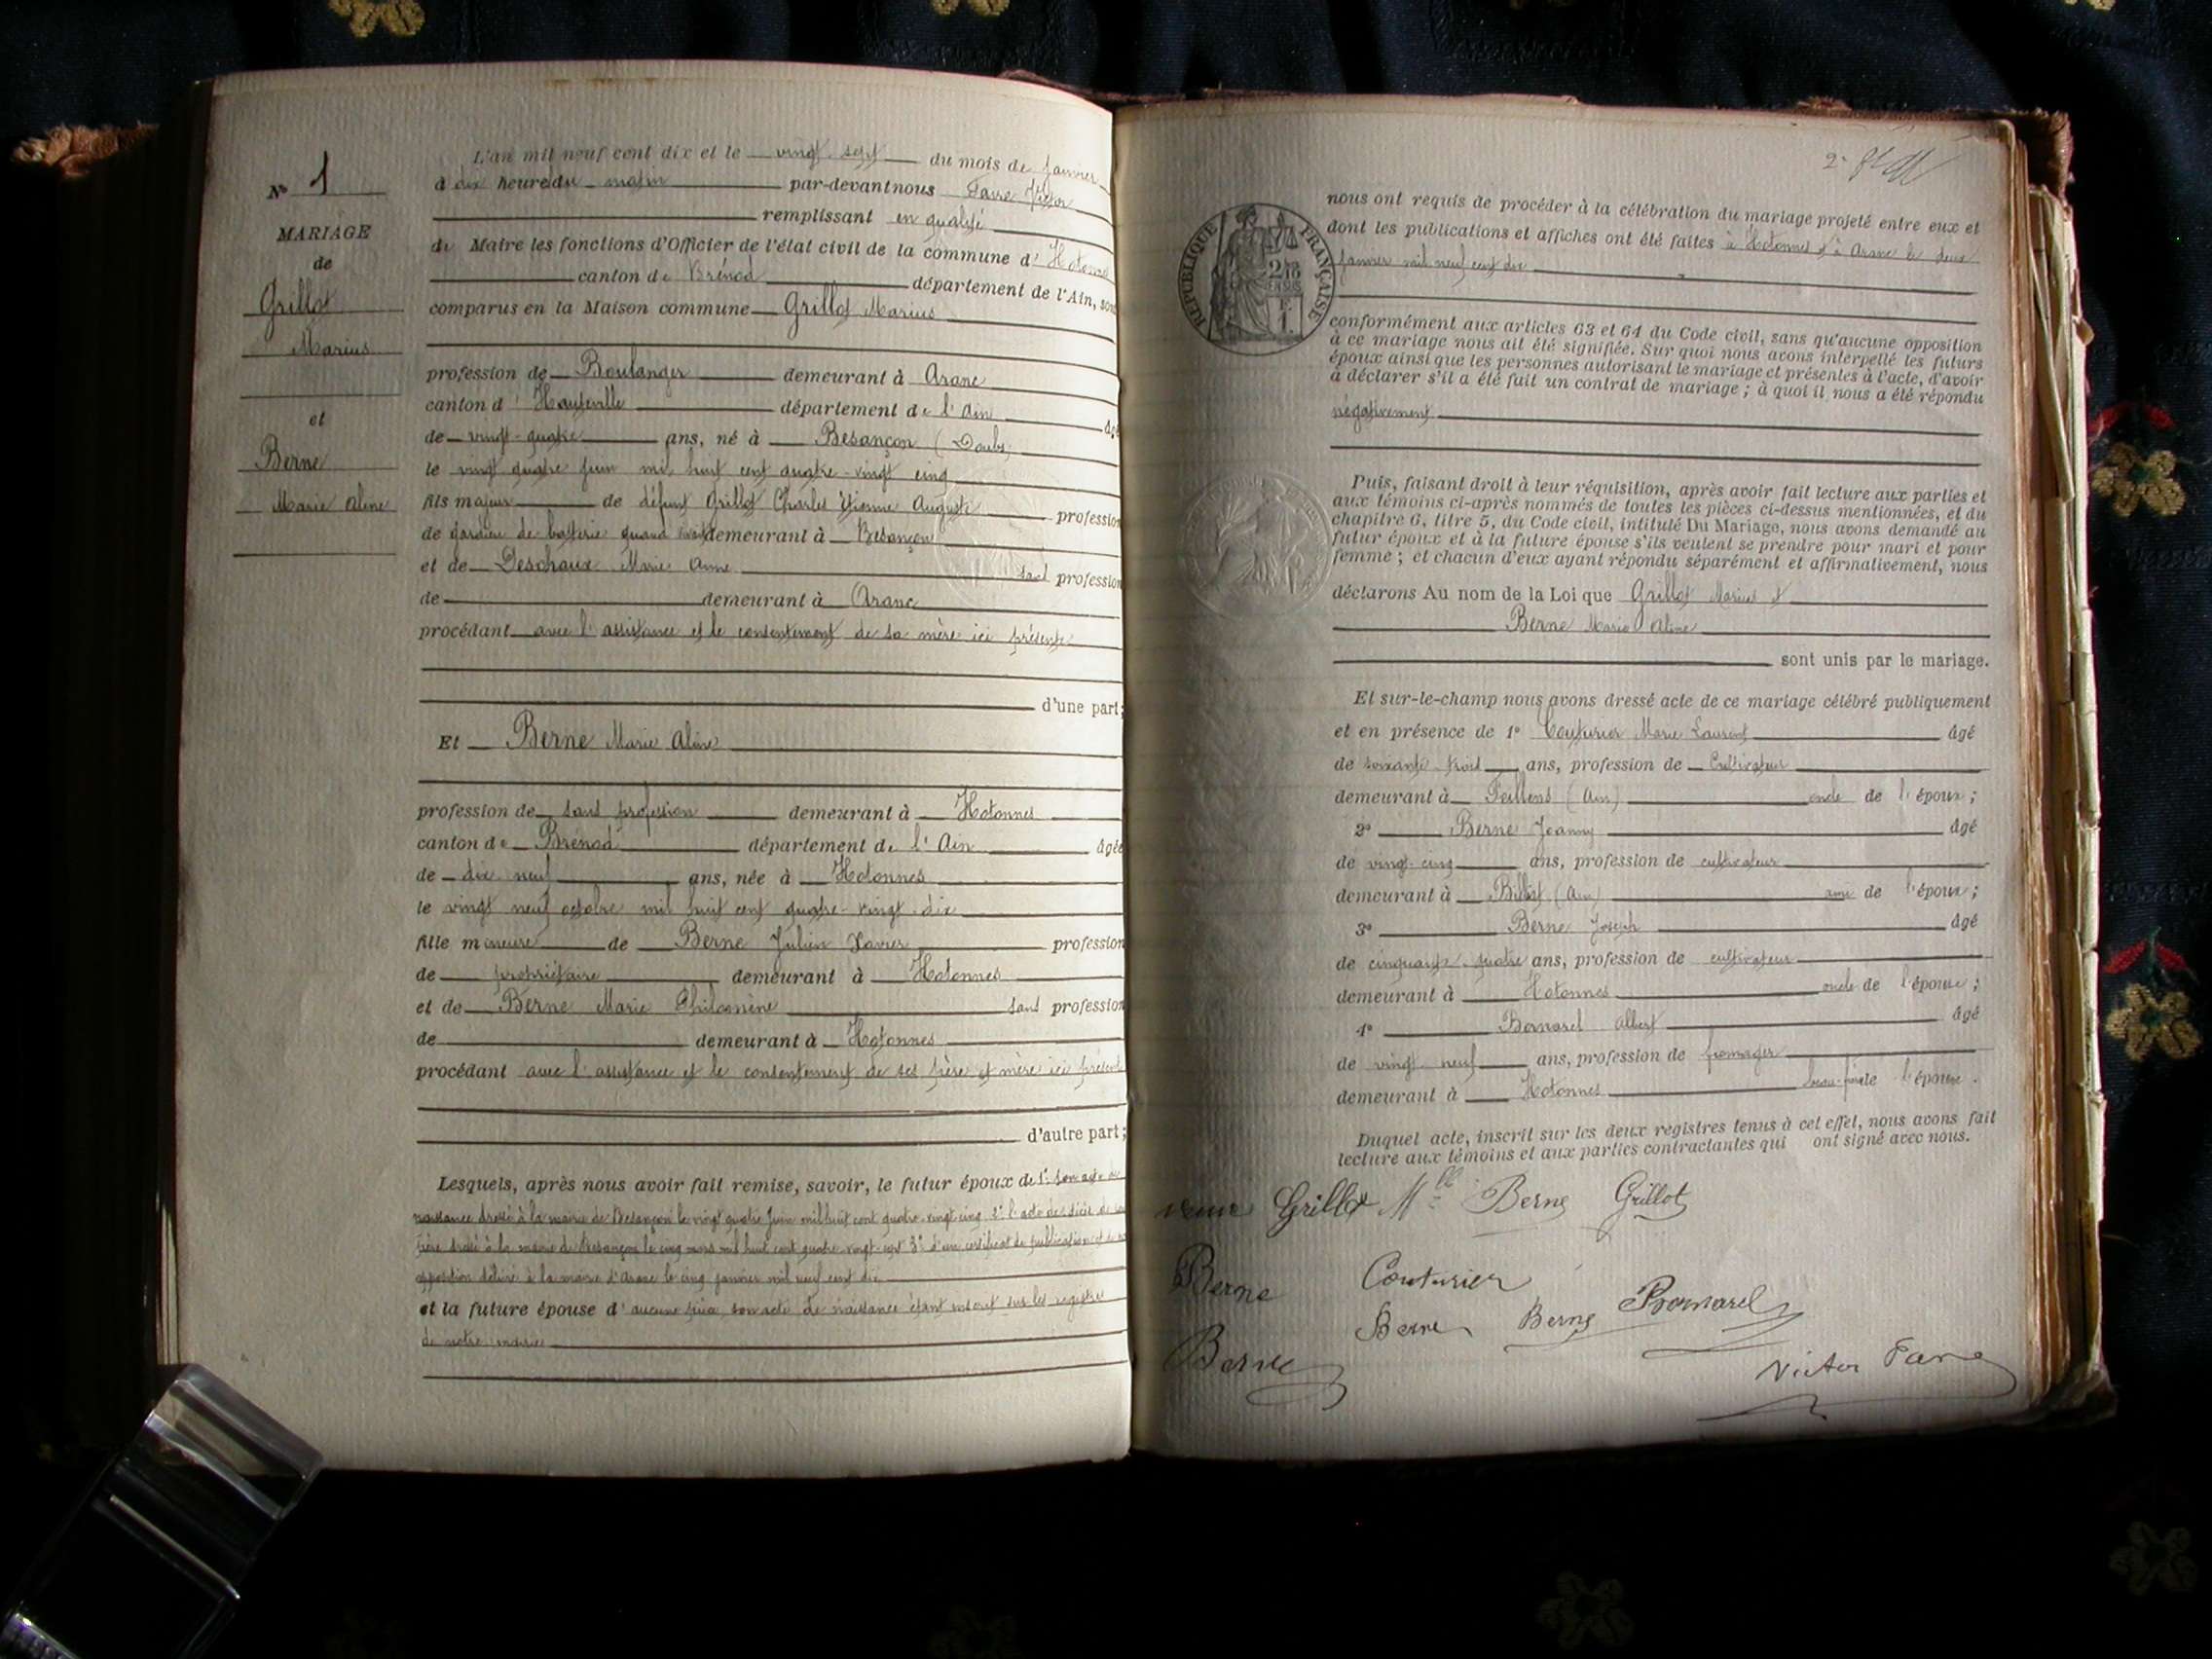 N° 1
MARIAGE
de
Grillot
Marius
et
Berne
Marie Aline
L'an mil neuf cent dix et le vingt sept du mois de janvier
à dix heure du matin par-devant nous Favre Victor
remplissant en qualité
de Maire les fonctions d'Officier de l'état civil de la commune d' Hotonnes
canton de Brénod département de l'Ain, sont
comparus en la Maison commune Grillot Marius
profession de Boulanger demeurant à Aranc
canton d' Hauteville département de l'Ain Agé
de vingt-quatre ans, né à Besançon (Doubs)
le vingt quatre juin mil huit cent quatre-vingt cinq
fils majeur de défunt Grillot Charles Etienne Auguste profession
de gardien de batterie quand vivait demeurant à Besançon
et de Deschaux Marie Anne sans profession
de demeurant à Aranc
procédant avec l'assistance et le consentement de sa mère ici présente
d'une part;
Et Berne Marie Aline
profession de sans profession demeurant à Hotonnes
canton de Brénod département de l'Ain âgée
de dix neuf ans, née à Hotonnes
le vingt neuf octobre mil huit cent quatre-vingt-dix
fille mineure de Berne Julien Xavier profession
de propriétaire demeurant à Hotonnes
et de Berne Marie Philomène sans profession
de demeurant à Hotonnes
procédant avec l'assistance et le consentement de ses père et mère ici présents
d'autre part;
Lesquels, après nous avoir fait remise, savoir, le futur époux de 1° son acte de
naissance dressé à la mairie de Besançon le vingt quatre Juin mil huit cent quatre-vingt-cinq 2° l'acte de décès de son
père dressé à la mairie de Besançon le cinq mars mil huit cent quatre-vingt-sept 3° d'un certificat de publication et de non
opposition délivré à la mairie d'Aranc le cinq janvier mil neuf cent dix
et la future épouse d'aucune pièce son acte de naissance étant inscrit sur les registres
de notre mairie
2
RÉPUBLIQUE FRANÇAISE
nous ont requis de procéder à la célébration du mariage projeté entre eux et
dont les publications et affiches ont été faites à Hotonnes et à Aranc le deux
janvier mil neuf cent dix
conformément aux articles 63 et 64 du Code civil, sans qu'aucune opposition
à ce mariage nous ait été signifiée. Sur quoi nous avons interpellé les futurs
époux ainsi que les personnes autorisant le mariage et présentes à l'acte, d'avoir
à déclarer s'il a été fait un contrat de mariage ; à quoi il nous a été répondu
négativement
Puis, faisant droit à leur réquisition, après avoir fait lecture aux parties et
aux témoins ci-après nommés de toutes les pièces ci-dessus mentionnées, et du
chapitre 6, titre 5, du Code civil, intitulé Du Mariage, nous avons demandé au
futur époux et à la future épouse s'ils veulent se prendre pour mari et pour
femme ; et chacun d'eux ayant répondu séparément et affirmativement, nous
déclarons Au nom de la Loi que Grillot Marius et
Berne Marie Aline
sont unis par le mariage.
Et sur-le-champ nous avons dressé acte de ce mariage célébré publiquement
et en présence de 1° Couturier Marie Laurent âgé
de soixante trois ans, profession de Cultivateur
demeurant à Feillens (Ain) oncle de l'époux ;
2° Berne Joanny âgé
de vingt-cinq ans, profession de cultivateur
demeurant à Billiat (Ain) ami de l'époux ;
3° Berne Joseph âgé
de cinquante-quatre ans, profession de cultivateur
demeurant à Hotonnes oncle de l'épouse ;
4° Bornarel Albert âgé
de vingt neuf ans, profession de fromager
demeurant à Hotonnes beau-frère de l'épouse.
Duquel acte, inscrit sur les deux registres tenus à cet effet, nous avons fait
lecture aux témoins et aux parties contractantes qui ont signé avec nous.
veuve Grillot Mlle Berne Grillot
Berne Couturier
Berne Berne Bornarel
Berne Victor Favre